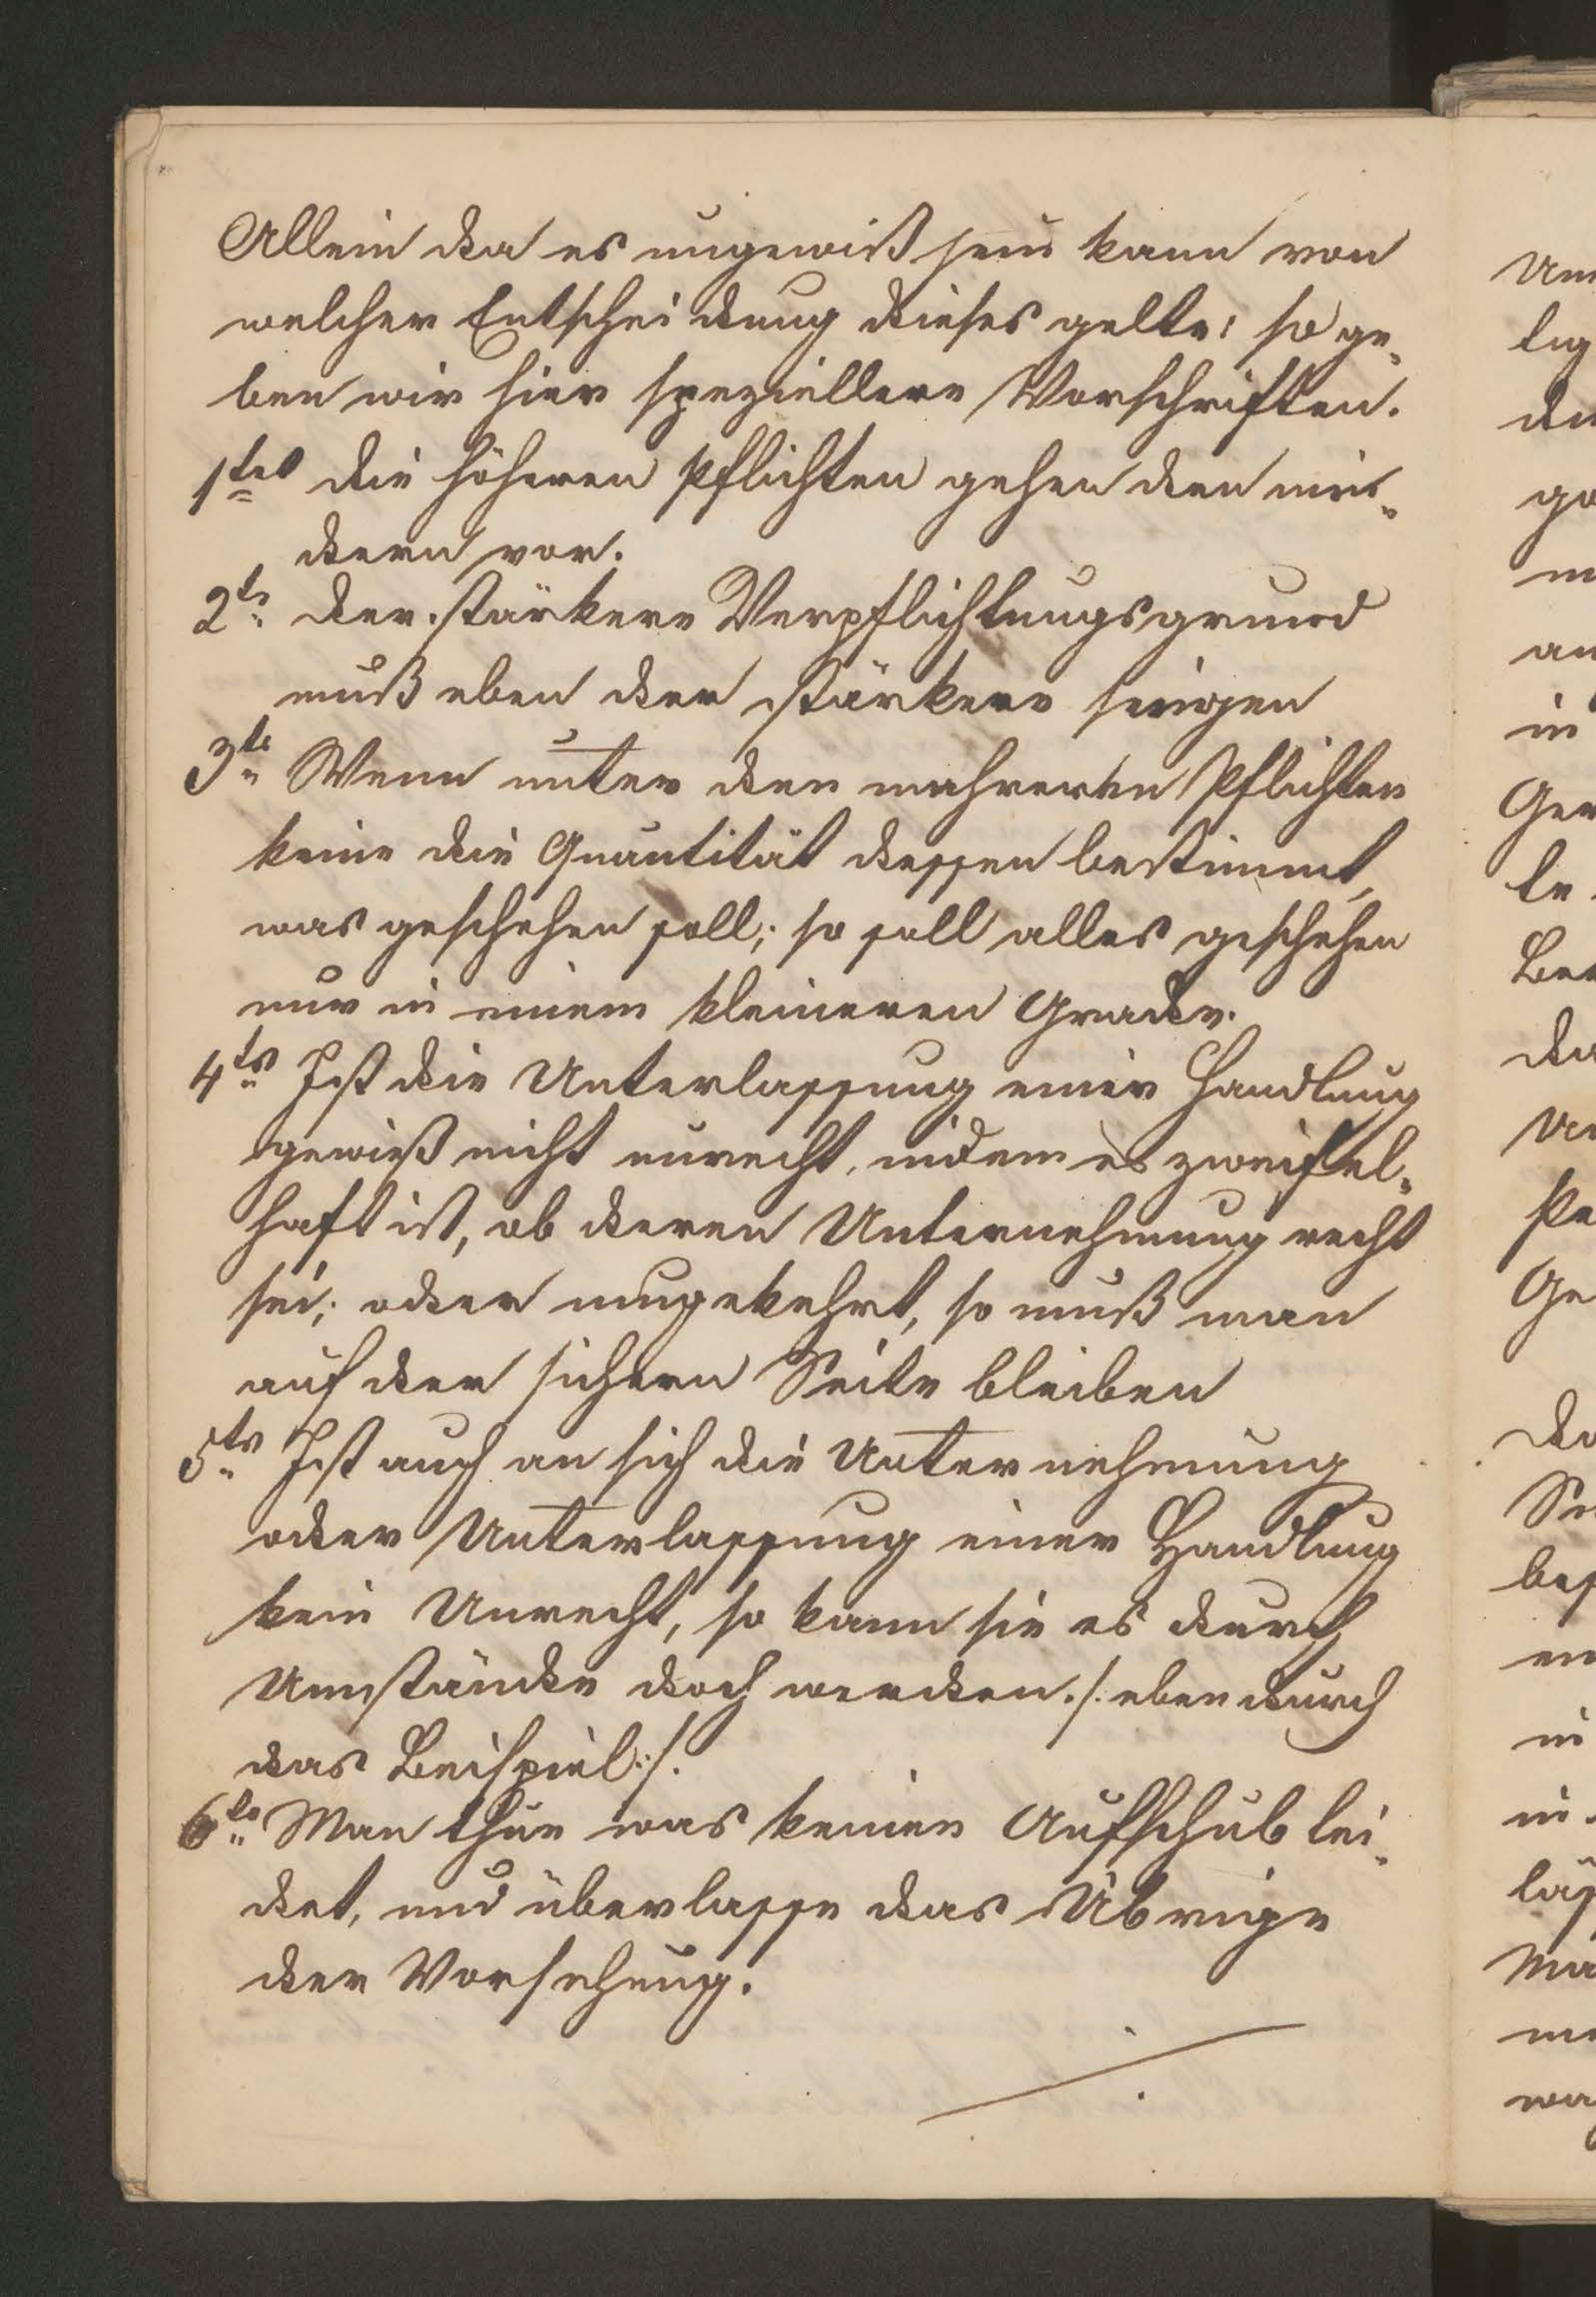 Allein da es ungewiß sein kann von
welcher Entscheidung dieses gelte: so ge-
ben wir hier speziellere Vorschriften.
1tes die höheren Pflichten gehen den min-
dern vor.
2te der stärkere Verpflichtungsgrund
muß eben der stärkere
3te Wenn unter den mehreren Pflichten
keine die Quantität dessen bestimmt,
was geschehen soll; so soll alles geschehen
nur in einem kleineren Grade.
4ts Ist die Unterlassung einer Handlung
gewiß nicht unrecht, indem es zweifel-
haft ist, ob deren Unternehmung recht
sei; oder umgekehrt, so muß man
auf der sichern Seite bleiben
5ts Ist auch an sich die Unternehmung
oder Unterlassung einer Handlung
kein Unrecht, so kann sie es durch
Umstände doch werden. /: eben durch
das Beispiel :/.
6ts Man thue was keinen Aufschub lei-
det, und überlasse das Übrige
der Vorsehung.